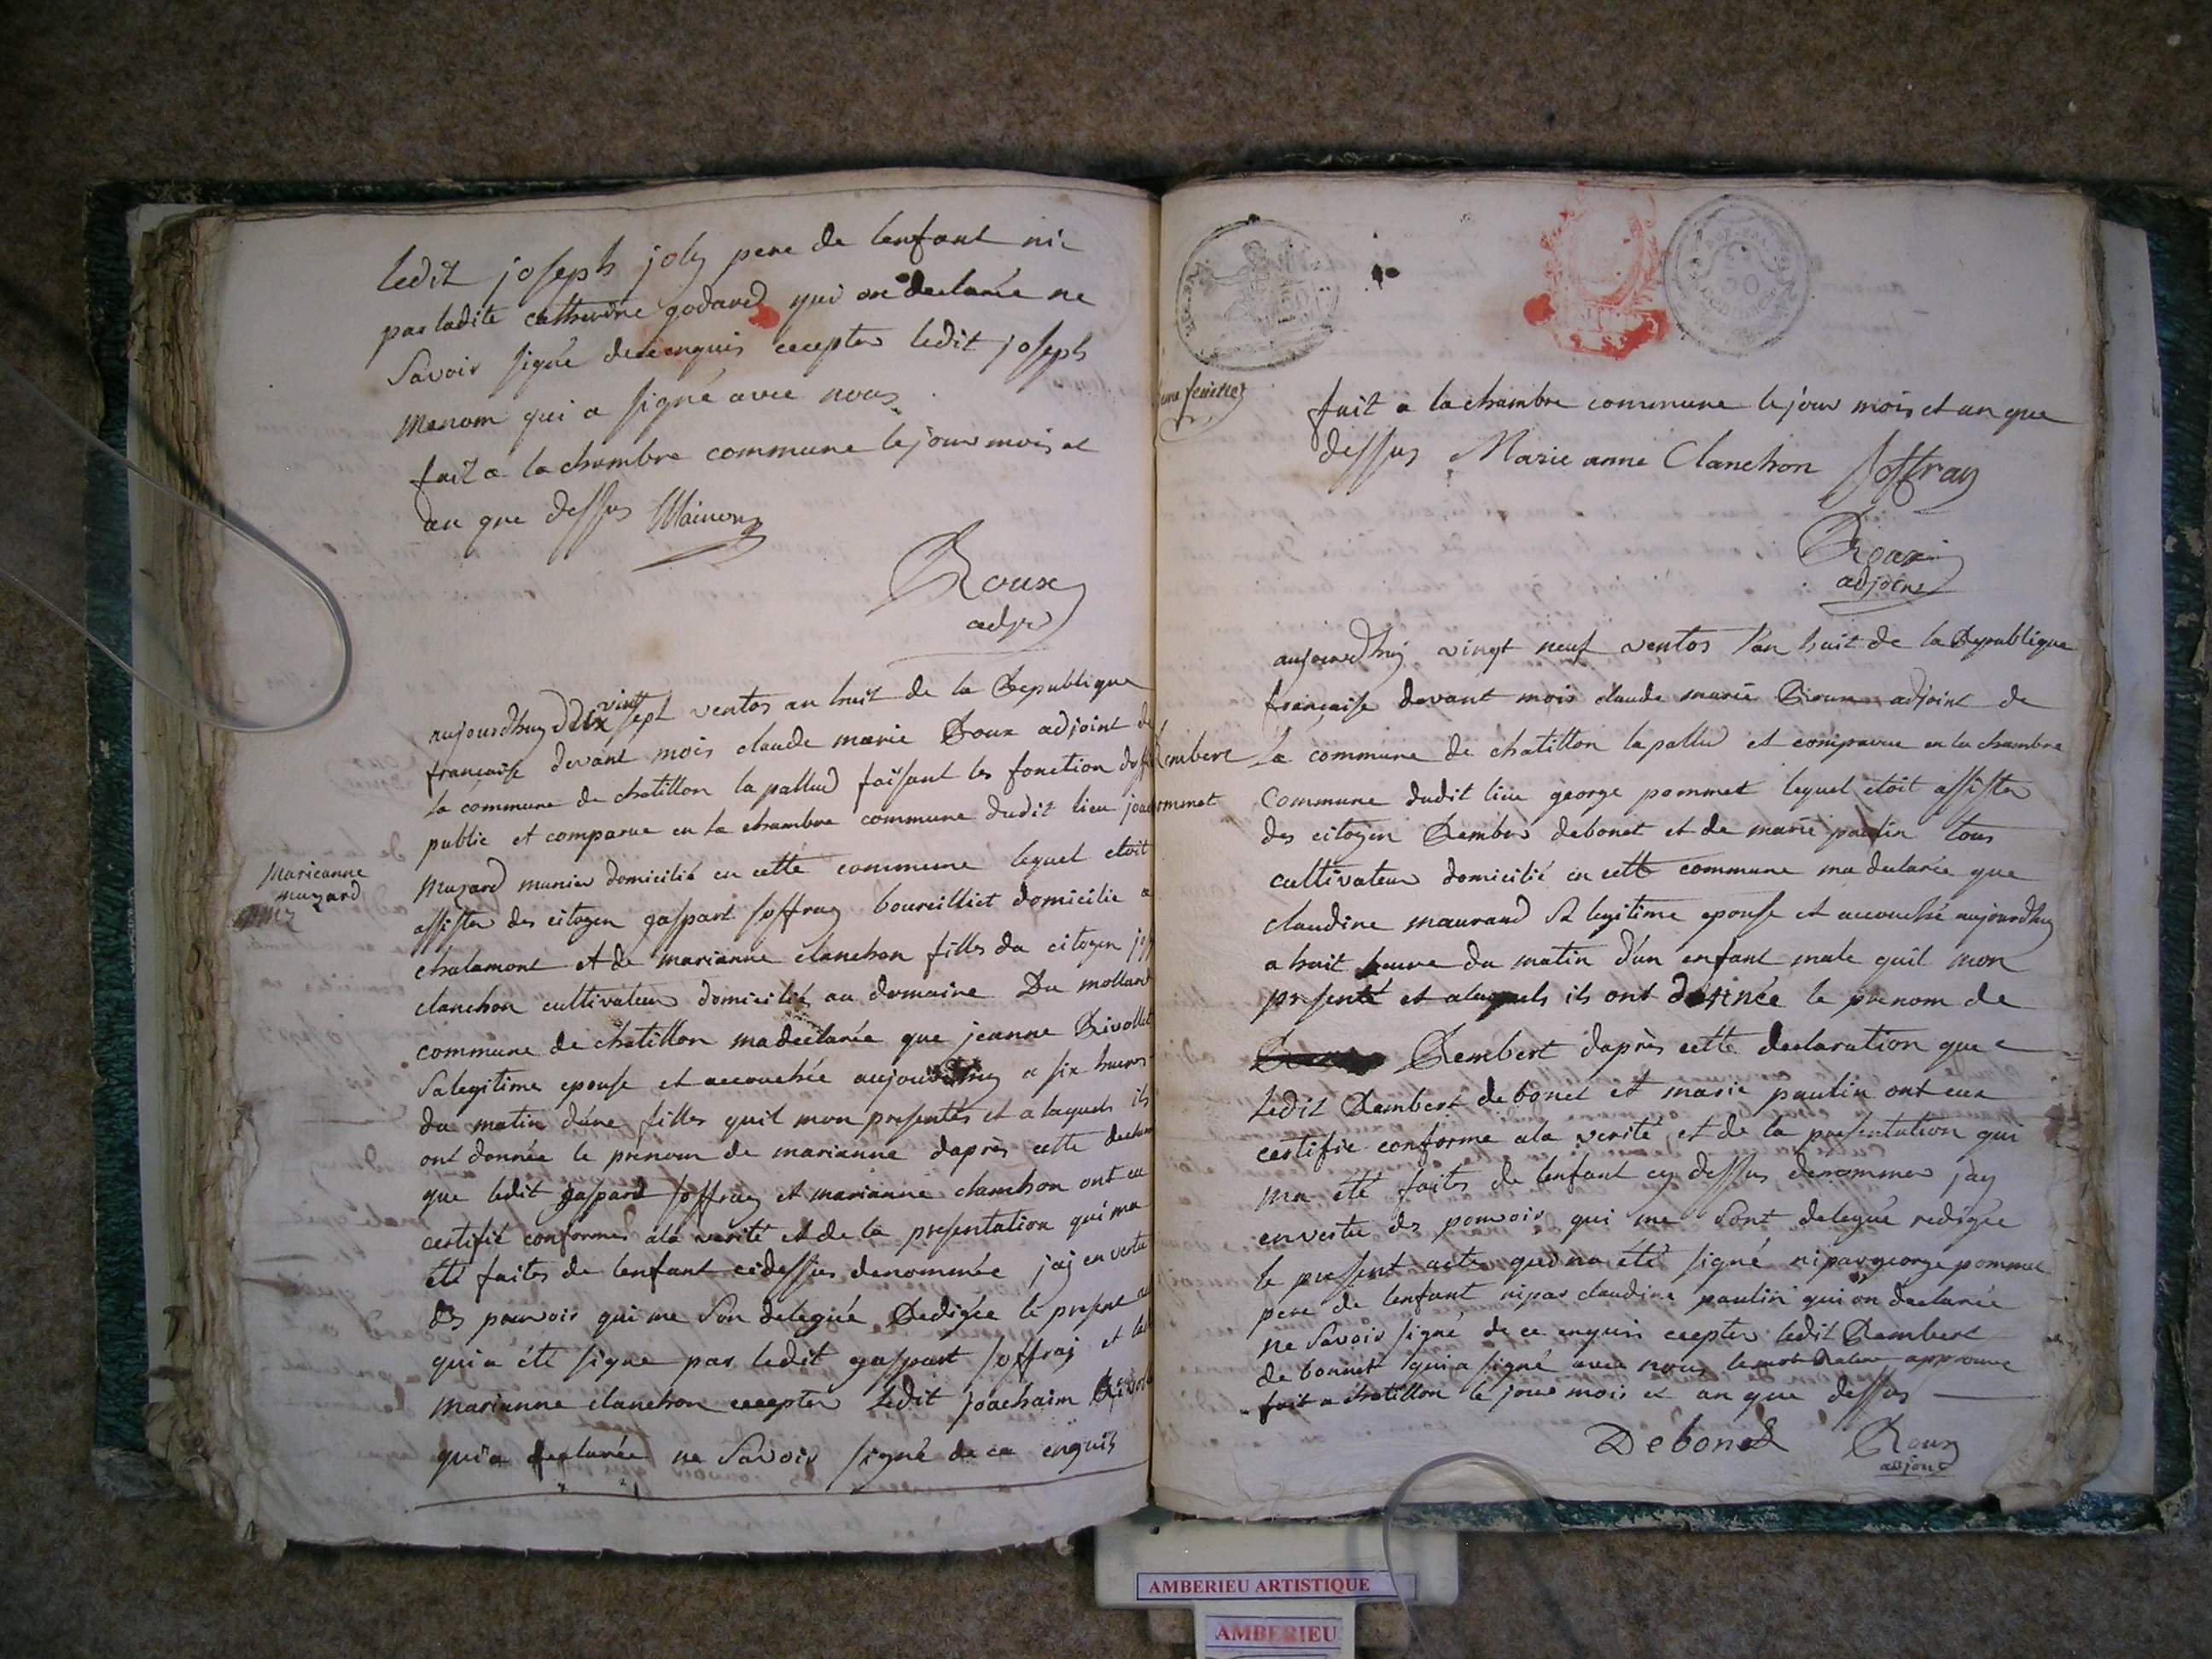 ledit joseph joly pere de lenfant ni
par ladite catherine godard qui on declarée ne
Savoir signé de ce enquis excepter ledit joseph
manom qui a signé avec nous
fait a la chambre commune le jour mois et
an que dessus Mainon
Roux
adjt
aujourdhuy dix vint sept ventos an huit de la Republique
francaise devant mois claude marie Roux adjoint de
la commune de chatillon la pallud faisant les fonction
public et comparue en la chambre commune dudit lieu
Marieanne
muzard
Muzard munier domicilié en cette commune lequel etoit
assister des citoyen gaspart soffray boureilliet domicilie a
chalamont et de marianne clanchon filles du citoyen
clanchon cultivateur domicilié au domaine Du mollard
commune de chatillon ma declarée que jeanne Rivollet
Sa legitime epouse et accouchée aujourdhuy a six heures
du matin d'une filles quil mon presentés et a laquels ils
ont donnée le prenom de marianne daprès cette
que ledit gaspard soffray et marianne clanchon ont eu
certifié conformes a la verité et de la presentation qui ma
été faites de lenfant cidessus denommée jaj en vertu
des pouvoir qui me Son deleguée Redigée le present
qui a été signe par ledit gaspart soffraj et
marianne clanchon excepter ledit joachaim
qui a declarée ne Savoir signé de ce enquis
fait a la chambre commune le jour mois et an que
dessus Marie anne Clanchon Soffray
Roux
adjoint
aujourdhuy vingt neuf ventos l'an huit de la Republique
francaise devant mois claude marie Roux adjoint de
Rembert
pommet
la commune de chatillon la pallud et comparue en la chambre
commune dudit lieu george pommet lequel étoit assister
des citoyen Rember debonet et de marie paulin tous
cultivateur domicilié en cette commune ma declarée que
claudine mauraud Sa legitime epouse et accouchée aujourdhuy
a huit heure du matin d'un enfant male quil mon
presenté et alaquels ils ont donnée le prenom de
Rembert daprès cette declaration que
ledit Rembert debonet et marie paulin ont eux
certifie conforme ala verité et de la presentation qui
ma été faites de lenfant cy dessus denommer jay
en vertu des pouvoir qui me Sont deleguée redigée
le present acte qui na été signé ni par george pommet
pere de lenfant ni par claudine paulin qui on declarée
ne Savoir signé de ce enquis excepter ledit Rembert
de bonnet qui a signé avec nous le mot approuve
fait a chatillon le jour mois et an que dessus
Debonet Roux
adjoint
AMBERIEU ARTISTIQUE
AMBERIEU